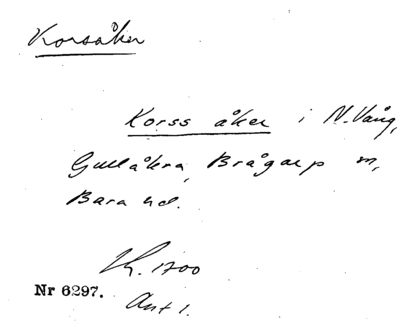 Korsåker
Korss åker i N. Vång,
Gullåkra, Brågarp m,
Bara hd.
Lh. 1700
Nr 6297.
Ant 1.